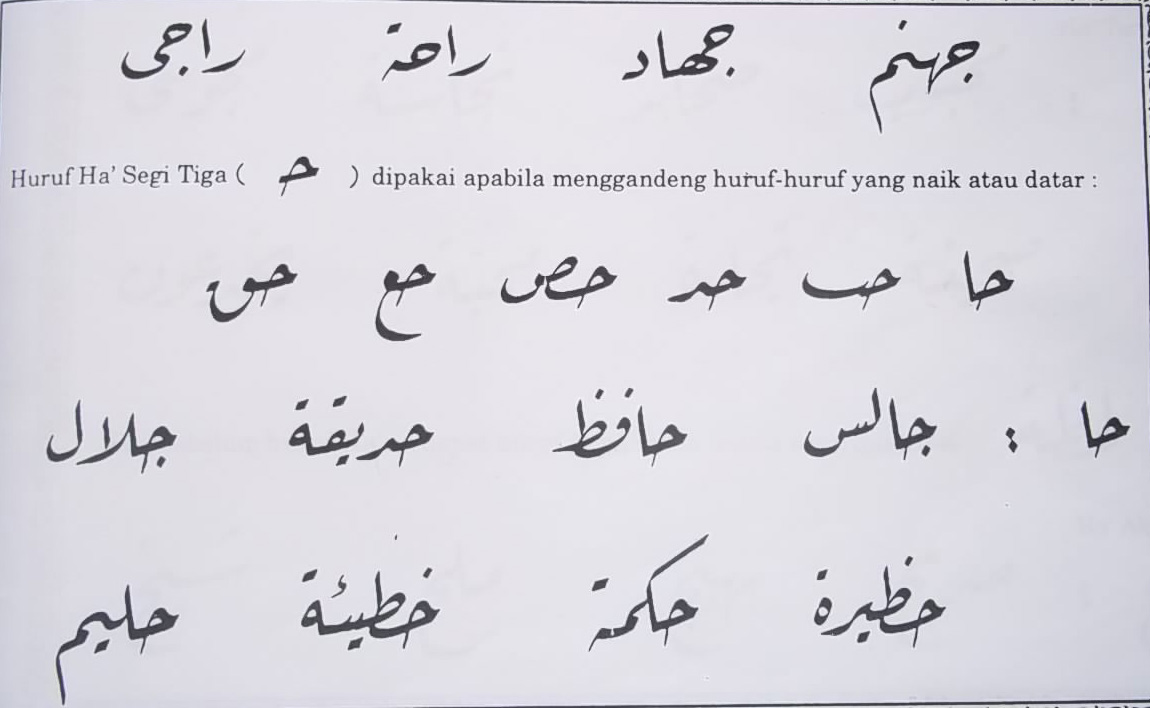 جهنم جهاد راحة راجى
Huruf Ha' Segi Tiga ( حـ ) dipakai apabila menggandeng huruf-huruf yang naik atau datar :
حا حب حد حص حع حق
حا : جالس حافظ حديقة جلال
حظيرة حكمة خطيئة حليم